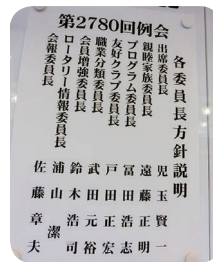 第2780回例会
各委員長方針説明
出席委員長 児玉賢一
親睦家族委員長 遠藤正明
プログラム委員長 冨田浩志
友好クラブ委員長 戸田正宏
職業分類委員長 武田元裕
会員増強委員長 鈴木浩司
ロータリー情報委員長 浦山潔
会報委員長 佐藤章夫